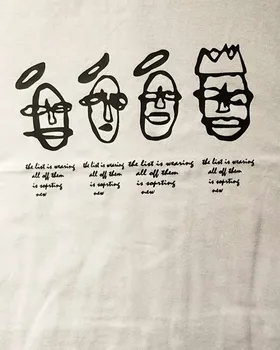 the list is wearing
all off them
is soprting
new
the list is wearing
all off them
is soprting
new
the list is wearing
all off them
is soprting
new
the list is wearing
all off them
is soprting
new